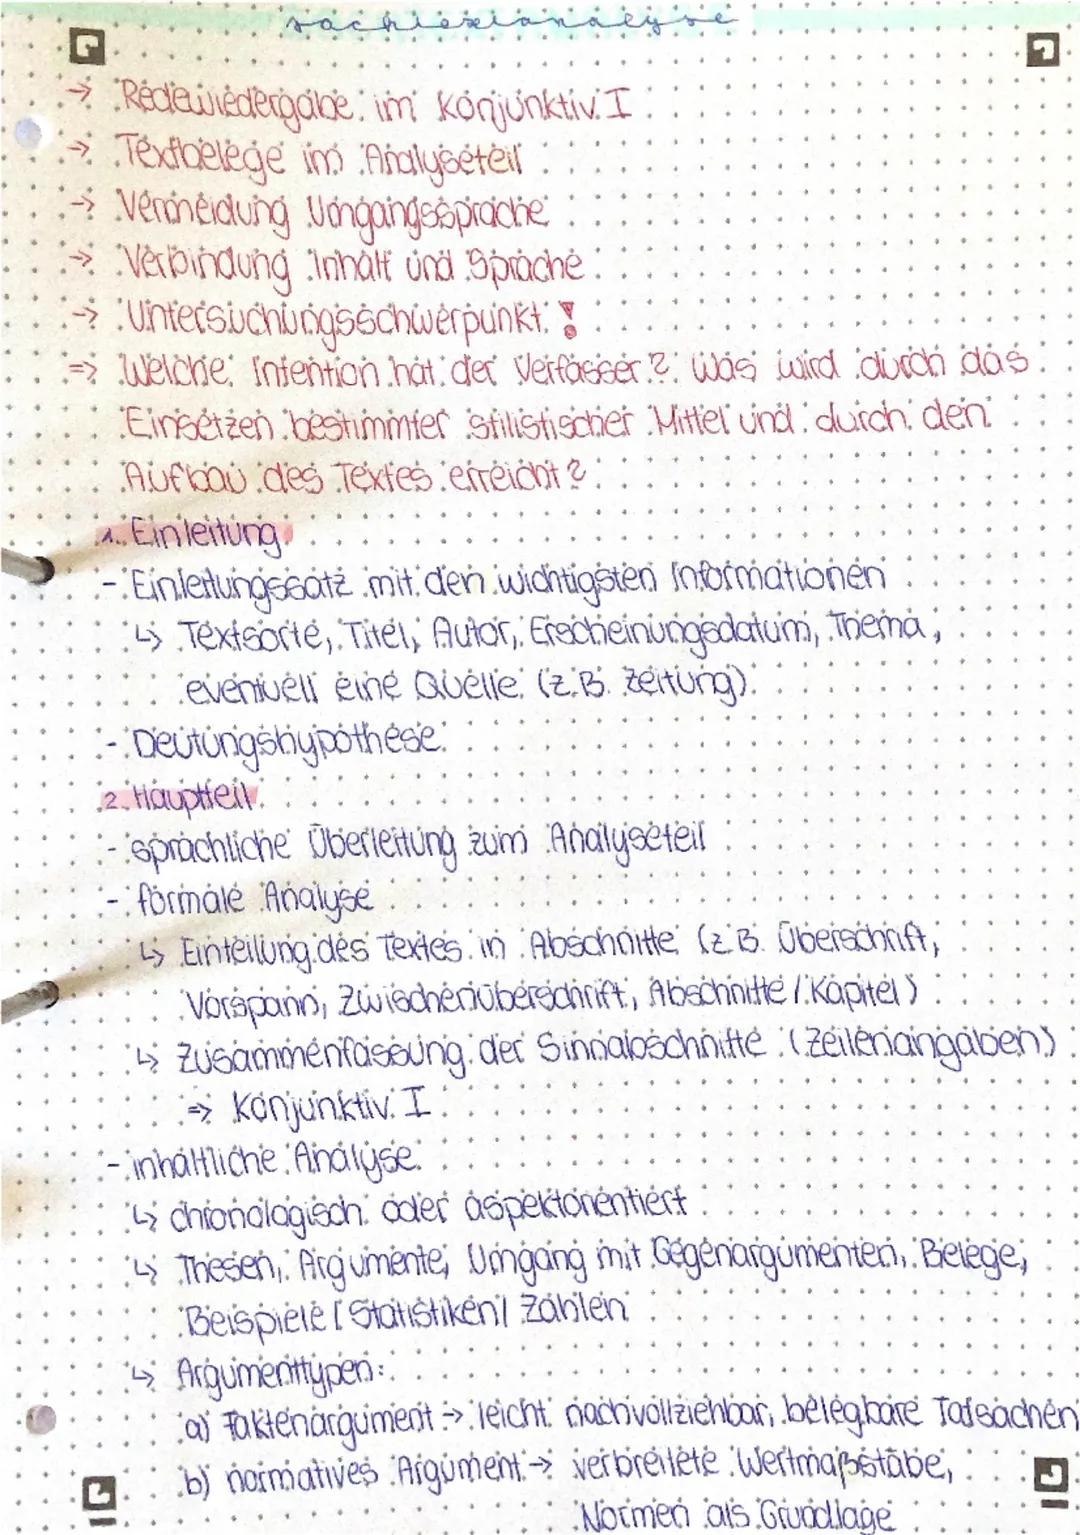 sachtextanalyse
→ Redewiedergabe im Konjunktiv I
→ Textbelege im Analyseteil
→ Vermeidung Umgangssprache
→ Verbindung Inhalt und Sprache
→ Untersuchungsschwerpunkt !
=> Welche Intention hat der Verfasser? Was wird durch das
Einsetzen bestimmter stilistischer Mittel und durch den
Aufbau des Textes erreicht?
1. Einleitung
- Einleitungssatz mit den wichtigsten Informationen
↳ Textsorte, Titel, Autor, Erscheinungsdatum, Thema,
eventuell eine Quelle (z.B. Zeitung)
- Deutungshypothese
2. Hauptteil
- sprachliche Überleitung zum Analyseteil
- formale Analyse
↳ Einteilung des Textes in Abschnitte (z.B. Überschrift,
Vorspann, Zwischenüberschrift, Abschnitte / Kapitel)
↳ Zusammenfassung der Sinnabschnitte (Zeilenangaben)
=> Konjunktiv I
- inhaltliche Analyse
↳ chronologisch oder aspektorientiert
↳ Thesen, Argumente, Umgang mit Gegenargumenten, Belege,
Beispiele / Statistiken / Zahlen
↳ Argumenttypen:
a) Faktenargument → leicht nachvollziehbar, belegbare Tatsachen
b) normatives Argument → verbreitete Wertmaßstäbe,
Normen als Grundlage